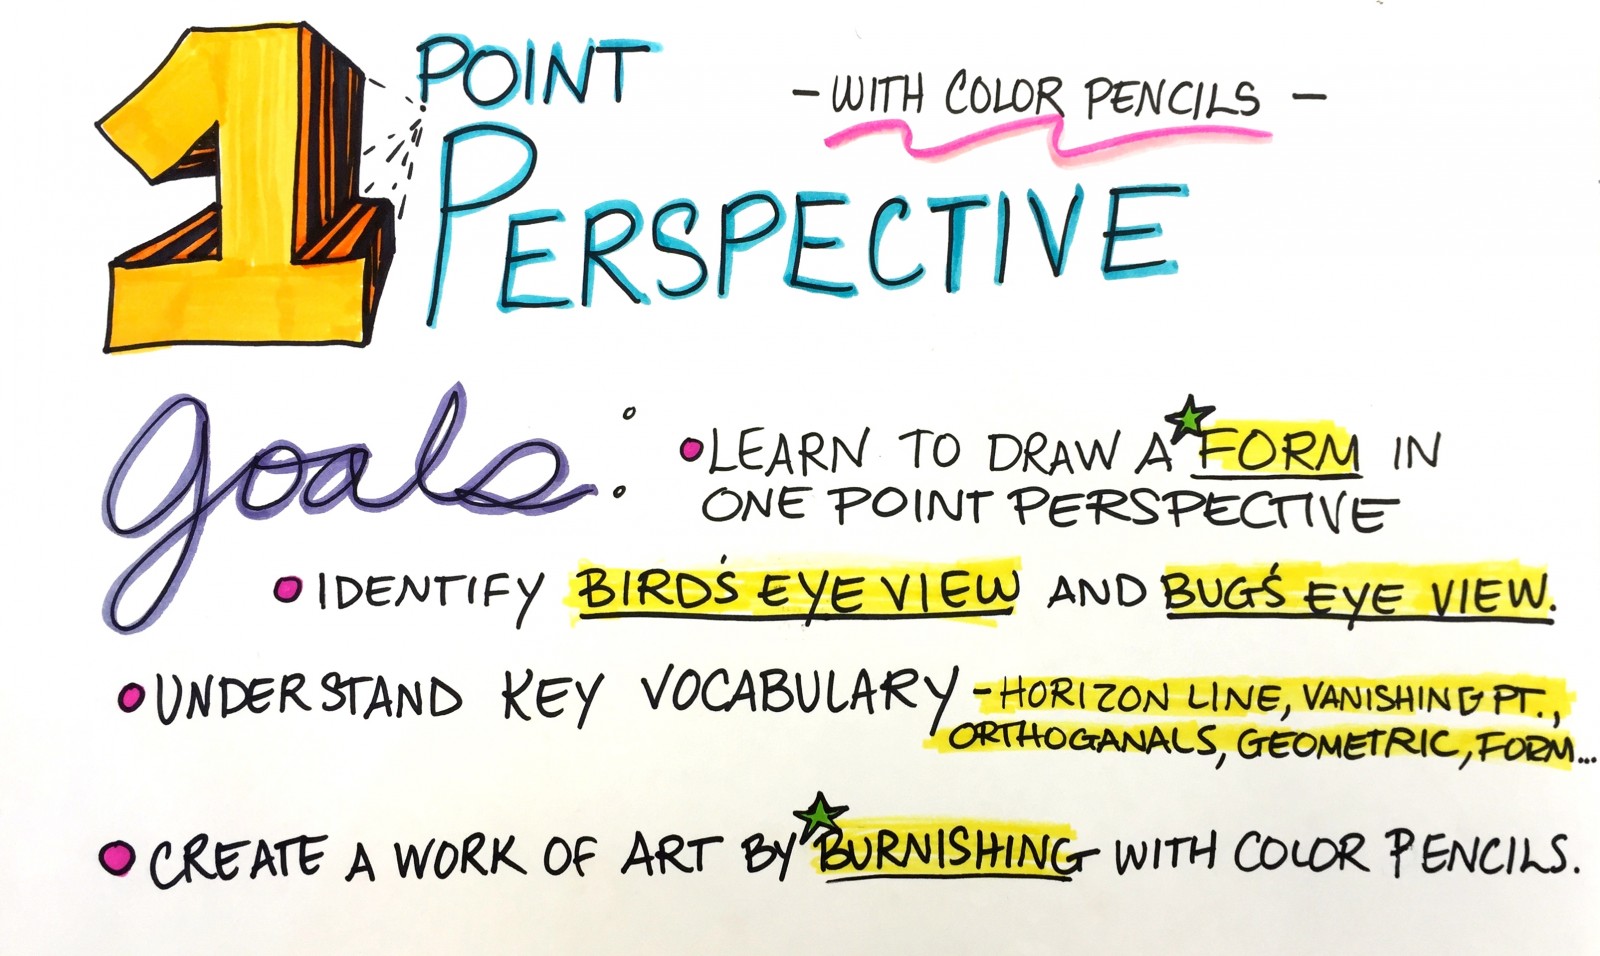 1 POINT
PERSPECTIVE
- WITH COLOR PENCILS -
goals:
• LEARN TO DRAW A ★ FORM IN
ONE POINT PERSPECTIVE
• IDENTIFY BIRD'S EYE VIEW AND BUG'S EYE VIEW.
• UNDERSTAND KEY VOCABULARY - HORIZON LINE, VANISHING PT.,
ORTHOGANALS, GEOMETRIC, FORM...
• CREATE A WORK OF ART BY ★ BURNISHING WITH COLOR PENCILS.